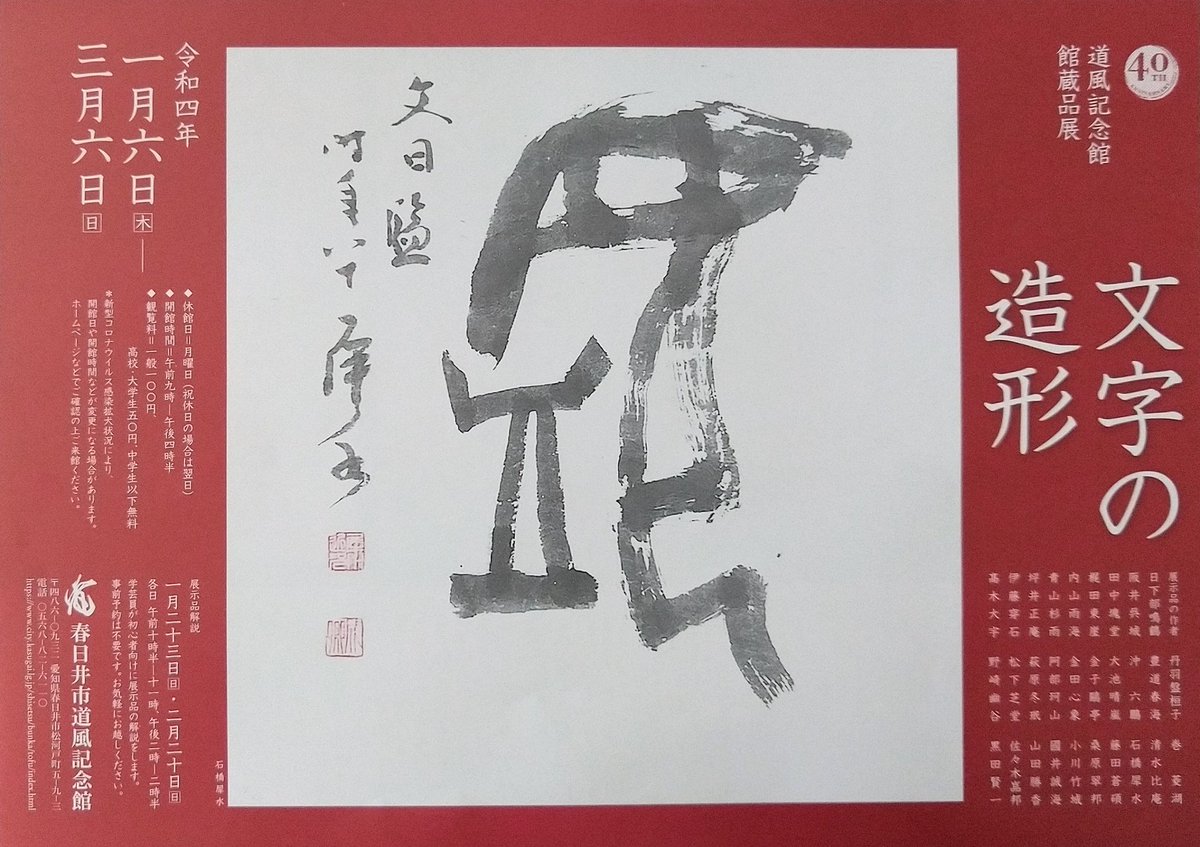 40TH
ANNIVERSARY
道風記念館
館蔵品展
文字の
造形
展示品の作者 丹羽盤桓子 巻菱湖
日下部鳴鶴 豊道春海 清水比庵
阪井呉城 沖六鵬 石橋犀水
田中塊堂 大池晴嵐 藤田蒼碩
梶田東崖 金子鷗亭 桑原翠邦
内山雨海 金田心象 小川竹城
青山杉雨 阿部珂山 國井誠海
坪井正庵 萩原冬珉 山田勝香
伊藤穿石 松下芝堂 佐々木嘉邦
髙木大宇 野崎幽谷 黒田賢一
文曰監
犀水
石橋犀水
令和四年
一月六日㊍―
三月六日㊐
◆休館日=月曜日(祝休日の場合は翌日)
◆開館時間=午前九時―午後四時半
◆観覧料=一般一〇〇円、
高校・大学生五〇円、中学生以下無料
*新型コロナウイルス感染拡大状況により、
開館日や開館時間などが変更になる場合があります。
ホームページなどでご確認の上ご来館ください。
展示品解説
一月二十三日㊐・二月二十日㊐
各日 午前十時半―十一時、午後二時―二時半
学芸員が初心者向けに展示品の解説をします。
事前予約は不要です。お気軽にお越しください。
春日井市道風記念館
〒四八六―〇九三二 愛知県春日井市松河戸町五―九―三
電話 〇五六八―八二―六一一〇
https://www.city.kasugai.lg.jp/shisetsu/bunka/tofu/index.html